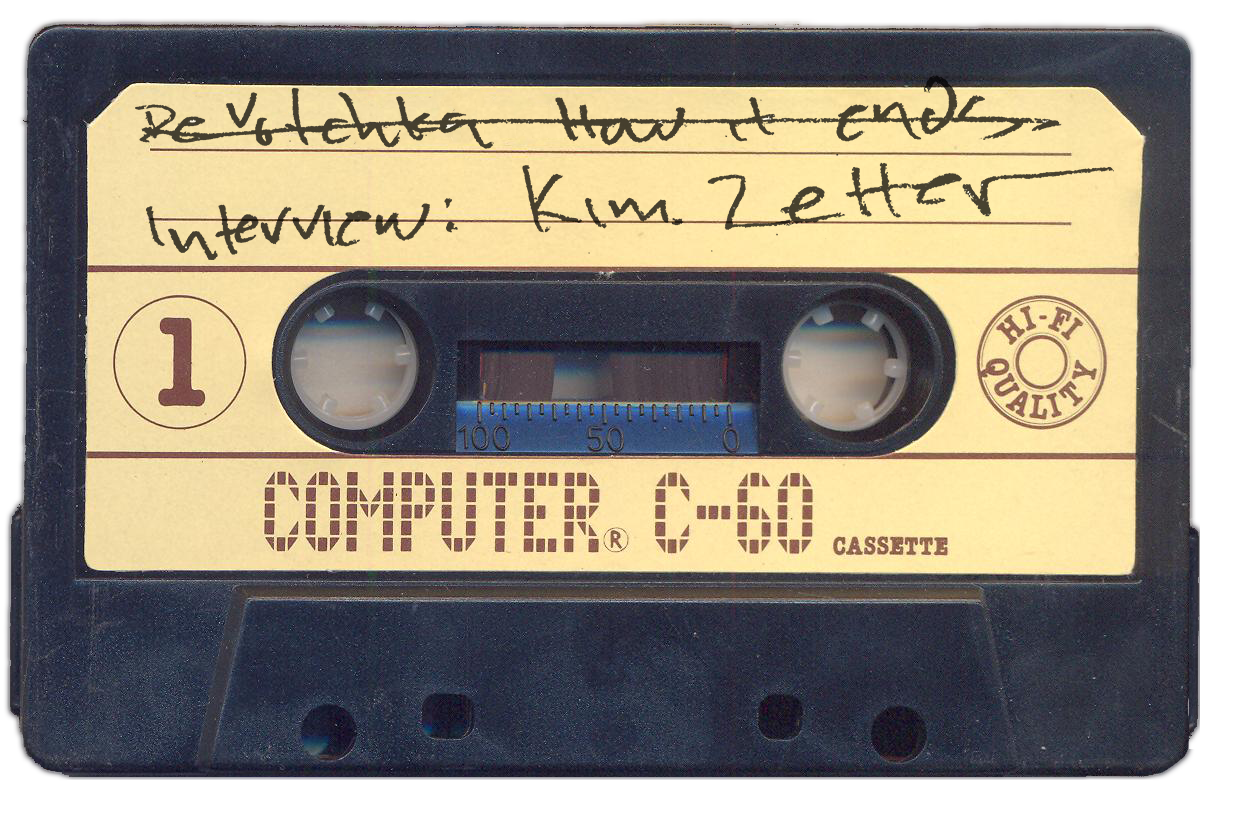 DeVotchka How it ends
Interview: Kim Zetter
1
HI-FI
QUALITY
100 50 0
COMPUTER® C-60 CASSETTE